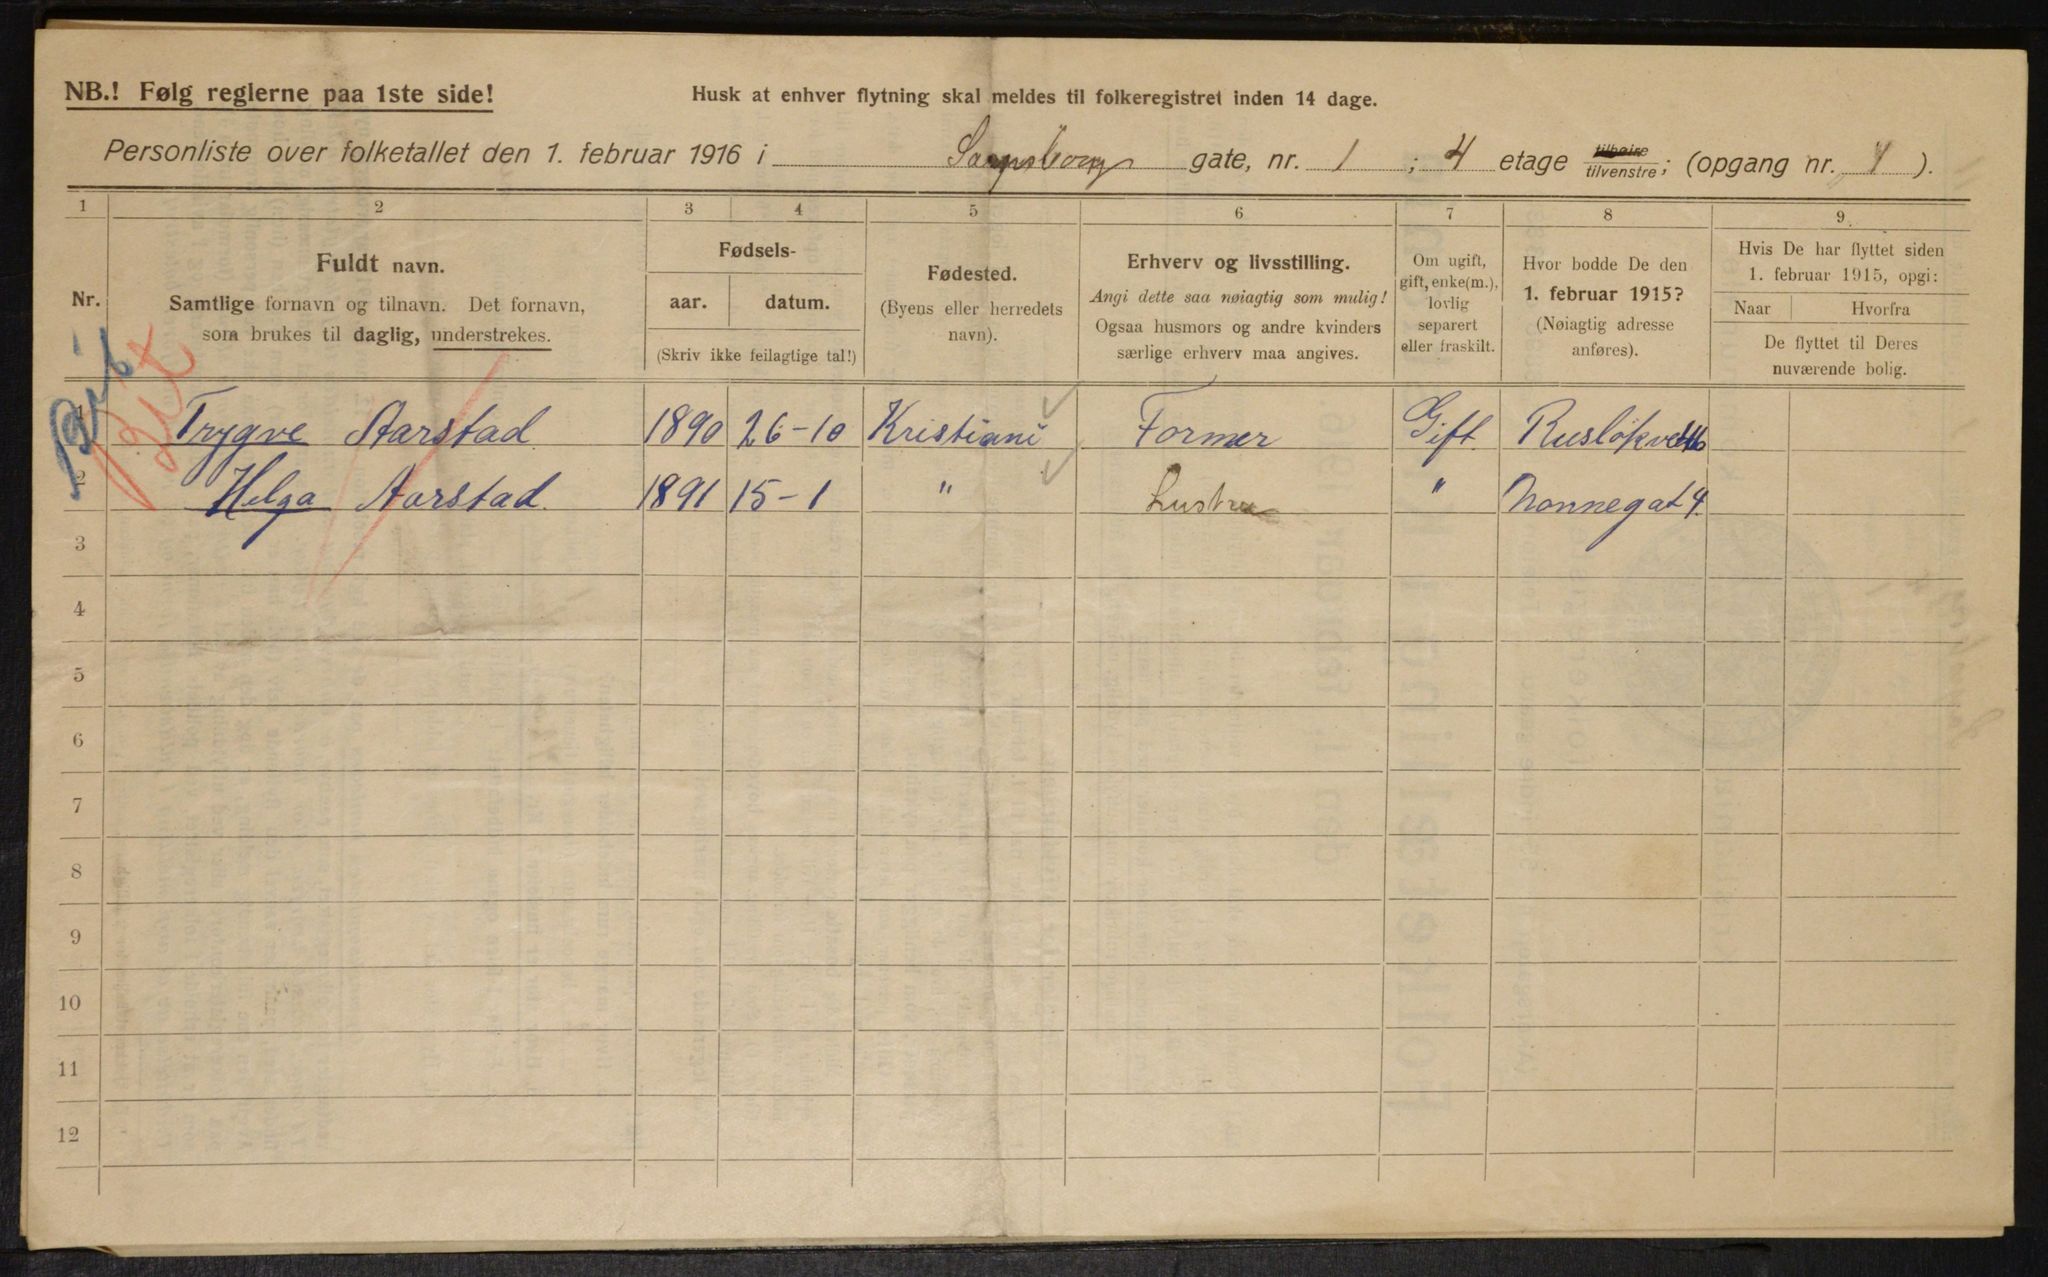 NB.! Følg reglerne paa 1ste side!
Husk at enhver flytning skal meldes til folkeregistret inden 14 dage.
Personliste over folketallet den 1. februar 1916 i Sarpsborg gate, nr. 1 ; 4 etage tilhøire tilvenstre; (opgang nr. 1 ).
1 2 3 4 5 6 7 8 9.
Nr.
Fuldt navn.
Samtlige fornavn og tilnavn. Det fornavn,
som brukes til daglig, understrekes.
Fødsels-
aar. datum.
(Skriv ikke feilagtige tal!)
Fødested.
(Byens eller herredets
navn).
Erhverv og livsstilling.
Angi dette saa nøiagtig som mulig!
Ogsaa husmors og andre kvinders
særlige erhverv maa angives.
Om ugift,
gift, enke(m.),
lovlig
separert
eller fraskilt.
Hvor bodde De den
1. februar 1915?
(Nøiagtig adresse
anføres).
Hvis De har flyttet siden
1. februar 1915, opgi:
Naar Hvorfra
De flyttet til Deres
nuværende bolig.
1 Trygve Aarstad 1890 26-10 Kristiani Former Gift.
2 Helga Aarstad. 1891 15-1 " Hustru " Nonnegat 4.
3
4
5
6
7
8
9
10
11
12